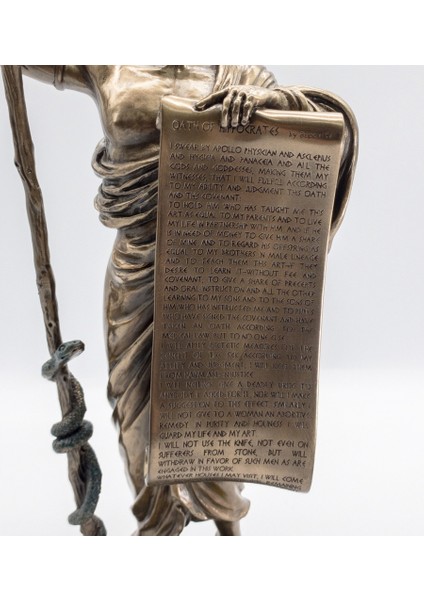 OATH OF HIPPOCRATES
I SWEAR BY APOLLO PHYSICIAN AND ASCLEPIUS
AND HYGIEIA AND PANACEIA AND ALL THE
GODS AND GODDESSES, MAKING THEM MY
WITNESSES, THAT I WILL FULFILL ACCORDING
TO MY ABILITY AND JUDGMENT THIS OATH
AND THIS COVENANT:
TO HOLD HIM WHO HAS TAUGHT ME THIS
ART AS EQUAL TO MY PARENTS AND TO LIVE
MY LIFE IN PARTNERSHIP WITH HIM, AND IF HE
IS IN NEED OF MONEY TO GIVE HIM A SHARE
OF MINE, AND TO REGARD HIS OFFSPRING AS
EQUAL TO MY BROTHERS IN MALE LINEAGE
AND TO TEACH THEM THIS ART-IF THEY
DESIRE TO LEARN IT-WITHOUT FEE AND
COVENANT; TO GIVE A SHARE OF PRECEPTS
AND ORAL INSTRUCTION AND ALL THE OTHER
LEARNING TO MY SONS AND TO THE SONS OF
HIM WHO HAS INSTRUCTED ME AND TO PUPILS
WHO HAVE SIGNED THE COVENANT AND HAVE
TAKEN AN OATH ACCORDING
LAW, BUT TO NO ONE
DIETETIC MEASURES
ACCORDING
INJUSTICE
A DEADLY DRUG TO
NOR WILL I MAKE
TO THIS EFFECT. SIMILARLY
WILL NOT GIVE TO A WOMAN AN ABORTIVE
REMEDY. IN PURITY AND HOLINESS I WILL
GUARD MY LIFE AND MY ART.
I WILL NOT USE THE KNIFE, NOT EVEN ON
SUFFERERS FROM STONE, BUT WILL
WITHDRAW IN FAVOR OF SUCH MEN AS ARE
ENGAGED IN THIS WORK.
WHATEVER HOUSES I MAY VISIT, I WILL COME